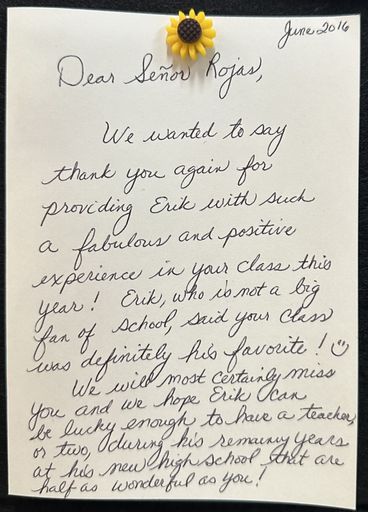 June 2016
Dear Señor Rojas,
We wanted to say
thank you again for
providing Erik with such
a fabulous and positive
experience in your class this
year! Erik, who is not a big
fan of school, said your class
was definitely his favorite! ☺
We will most certainly miss
you and we hope Erik can
be lucky enough to have a teacher,
or two, during his remainy years
at his new high school that are
half as wonderful as you!